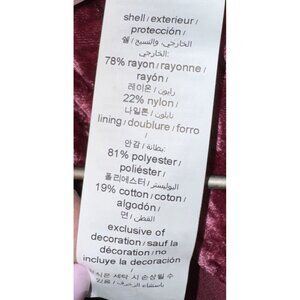 shell / exterieur /
protección /
쉘 / الخارجي، والنسيج /
الخارجي:
78% rayon / rayonne /
rayón /
레이온 / رايون /
22% nylon /
나일론 / نايلون /
lining / doublure / forro
/
안감 / بطانة:
81% polyester /
poliéster /
폴리에스터 / البوليستر /
19% cotton / coton /
algodón /
면 / القطن /
exclusive of
decoration / sauf la
décoration / no
incluye la decoración
/
장식은 세탁 시 손상될 수
باستثناء الزخرفة /